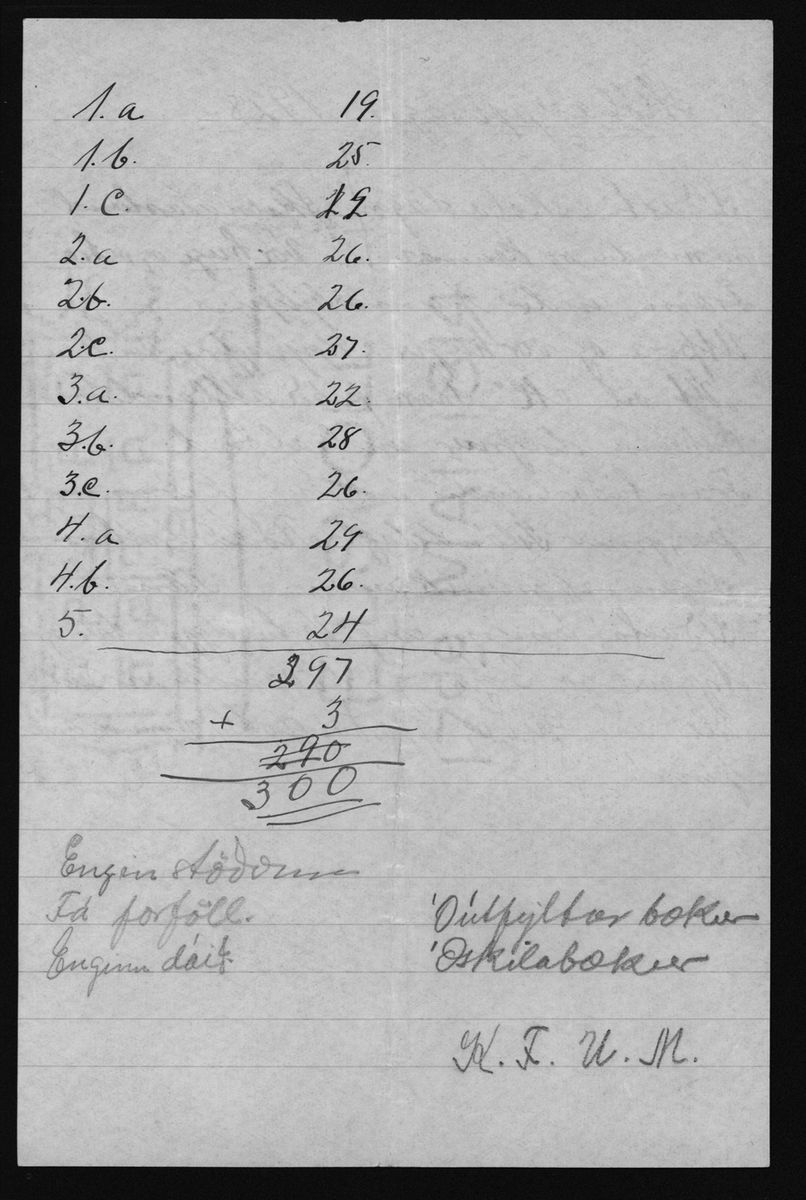 1.a 19.
1.b. 25.
1.c. 19
2.a 26.
2.b. 26.
2.c. 27.
3.a. 22.
3.b. 28
3.c. 26.
4.a 29
4.b. 26.
5. 24
297
+ 3
290
300
Engin
Fá forföll.
Enginn dáið.
Óútfyltar bækur
Óskilabækur
K. F. U. M.